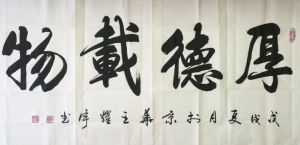 厚德載物
戊戌夏月於京華王耀宇书